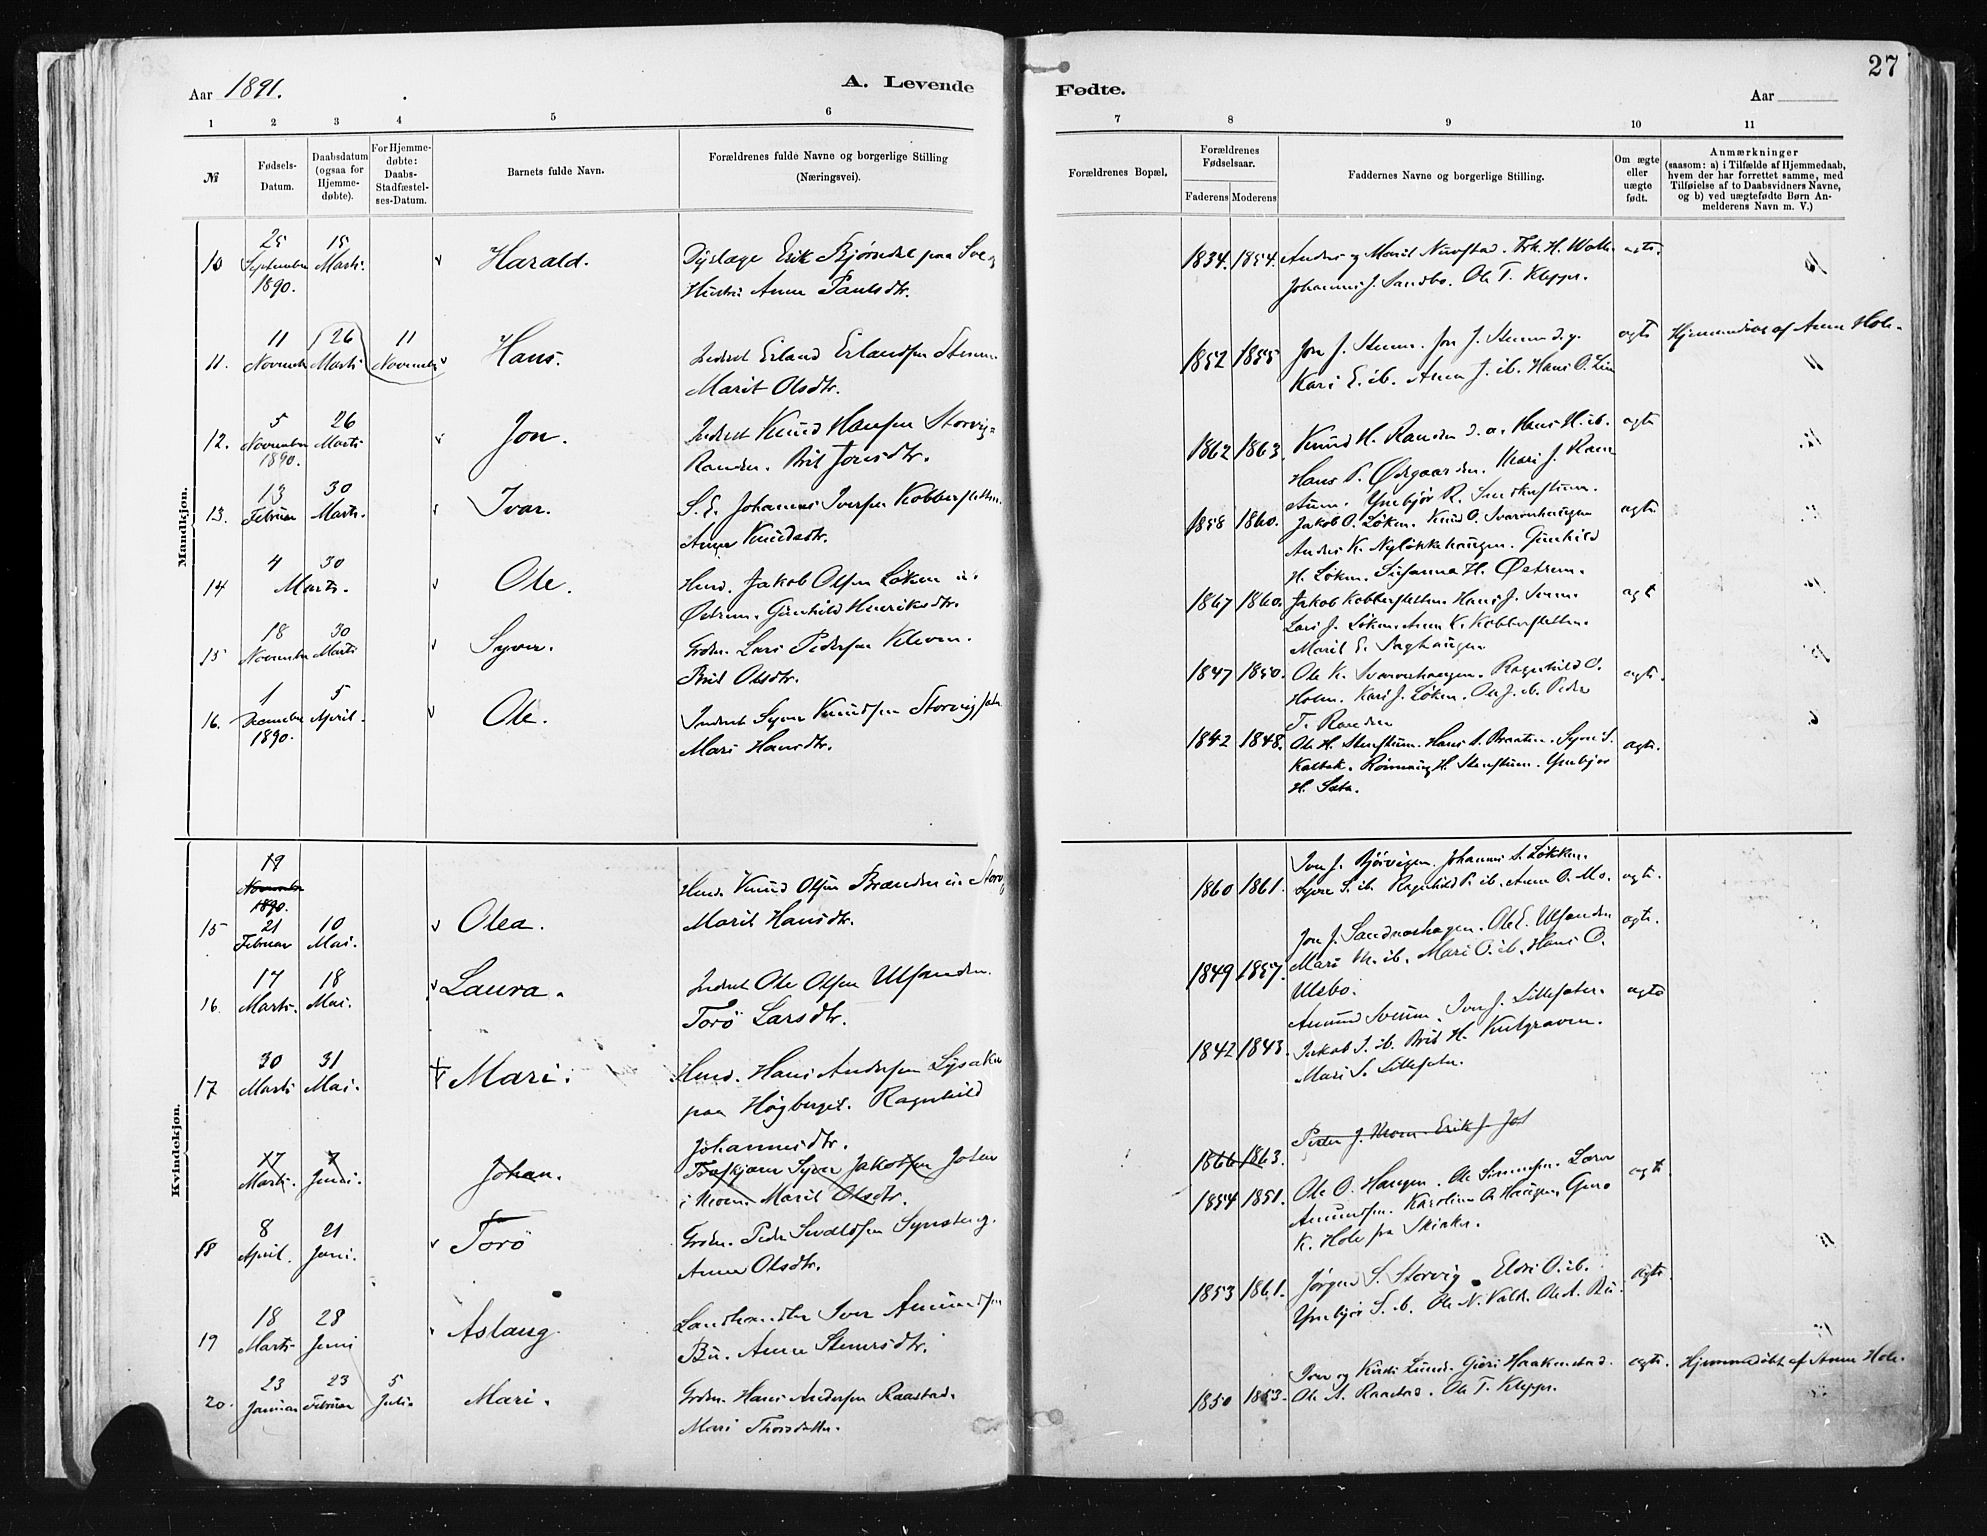 27
Aar 1891.
A. Levende
Fødte.
Aar
1 2 3 4 5 6 7 8 9 10 11
№
Fødsels-
Datum.
Daabsdatum
(ogsaa for
Hjemme-
døbte).
For Hjemme-
døbte:
Daabs-
Stadfæstel-
ses-Datum.
Barnets fulde Navn.
Forældrenes fulde Navne og borgerlige Stilling
(Næringsvei).
Forældrenes Bopæl,
Forældrenes
Fødselsaar.
Faderens Moderens
Faddernes Navne og borgerlige Stilling.
Om ægte
eller
uægte
født.
Anmærkninger
(saasom: a) i Tilfælde af Hjemmedaab,
hvem der har forrettet samme, med
Tilføielse af to Daabsvidners Navne,
og b) ved uægtefødte Børn An-
melderens Navn m. V.)
Mandkjøn.
10 25 September 1890. 15 Marts. Harald.
Dyrlæge Erik Bjørndal paa
Hustru Anne Paulsdtr.
1834. 1854. Anders og Marit
Johannes J. Sandbo. Ole T. Kleppe.
11. 11 Novembr 26 Marts 11 Novembr Hans.
Inderst Erland Erlandsen
Marit Olsdtr.
1852 1855 Jon J.
Kari E. ib. Anna J. ib. Hans O. ægte
Hjemmedøbt af Anne Hole.
12. 5 November 1890. 26 Marts Jon.
Inderst Knud Hansen Storvig
Randen. Brit Jonsdtr.
1862 1863. Knud H. Randen d. a. Hans H. ib.
Hans P. Ødegaarden. Mari J.
ægte
13. 13 Februar 30 Marts. Ivar.
S. E. Johannes Iversen Kobberstetten.
Anne Knudsdtr.
1858 1860. Jakob O. Løken. Knud O. Svarvarhaugen
Anders K. Nyløkkehaugen. Gunhild
H. Løken. Susanna H. Østrem.
ægte
14 4 30 Marts. Ole.
Husm. Jakob Olsen Løken u.
Østrem. Gunhild Henriksdtr.
1867 1860. Jakob Kobberstetten. Hans J.
Lars J. Løken. Anne K. Kobberstetten.
Marit E. Saghaugen
ægte
15 18 November 30 Marts Syver.
Grdbr. Lars Pedersen Kleven.
Brit Olsdtr.
1847 1850. Ole K. Svarvarhaugen. Ragnhild O.
Holm. Kari J. Løken. Ole J. ib. Peder
T. Randen
ægte.
16. 1 December 1890. 5 April. Ole.
Inderst Syver Knudsen
Mari Hansdtr.
1842 1848. Ole H. Stenstuen. Hans S. Braaten. Syver S.
Kalbæk. Rønnaug H. Stenstuen. Ymbjør
H.
ægte.
Kvindekjøn.
19 November 1890.
15 21 Februar 10 Mai. Olea.
Husm. Knud Olsen Brænden u.
Marit Hansdtr.
1860 1861. Iver J. Bjørvigen. Johannes S. Løkken.
Syver S. ib. Ragnhild P. ib. Anne O. Mo. ægte.
16 17 Marts. 18 Mai. Laura.
Inderst Ole Olsen Ulsanden.
Torø Larsdtr.
1849 1857. Jon J. Sandneshagen. Ole E. Ulsanden
Mari M. ib. Mari O. ib. Hans O.
Ulsbo.
ægte.
17 30 Marts 31 Mai. Mari.
Husm. Hans Andersen
paa Høgberget. Ragnhild
Johannesdtr.
1842 1843. Amund Sveum. Iver J. Lillesæter.
Jakob J. ib. Brit H. Kulgraven.
Mari S. Lillesæter.
ægte
17 Marts. 7 Juni. Johan.
Syver Jakobsen
i Moen. Marit Olsdtr.
1866 1863. Peder J. Moen. Erik J.
18 8 April. 21 Juni. Torø
Grdbr. Peder
Anne Olsdtr.
1854 1851. Ole O. Haugen. Ole Simensen. Lærer
Amundsen. Karoline O. Haugen, Guro
K. Hole fra Skiaker.
ægte
19 18 Marts. 28 Juni Aslaug
Landhandler Iver Amundsen
Bu. Anne Stenersdtr.
1853 1861. Jørgen S. Storvig. Eldri O. ib.
Ymbjør S. ib. Ole N. Valde. Ole A. Bu. ægte.
20. 23 Januar 23 Februar 5 Juli. Mari.
Grdbr. Hans Andersen Raastad.
Mari Thorsdatter.
1850 1853. Iver og Kirsti Lund. Guri Haakenstad.
Ole A. Raastad. Ole T. Kleppe.
ægte. Hjemmedøbt af Anne Hole.